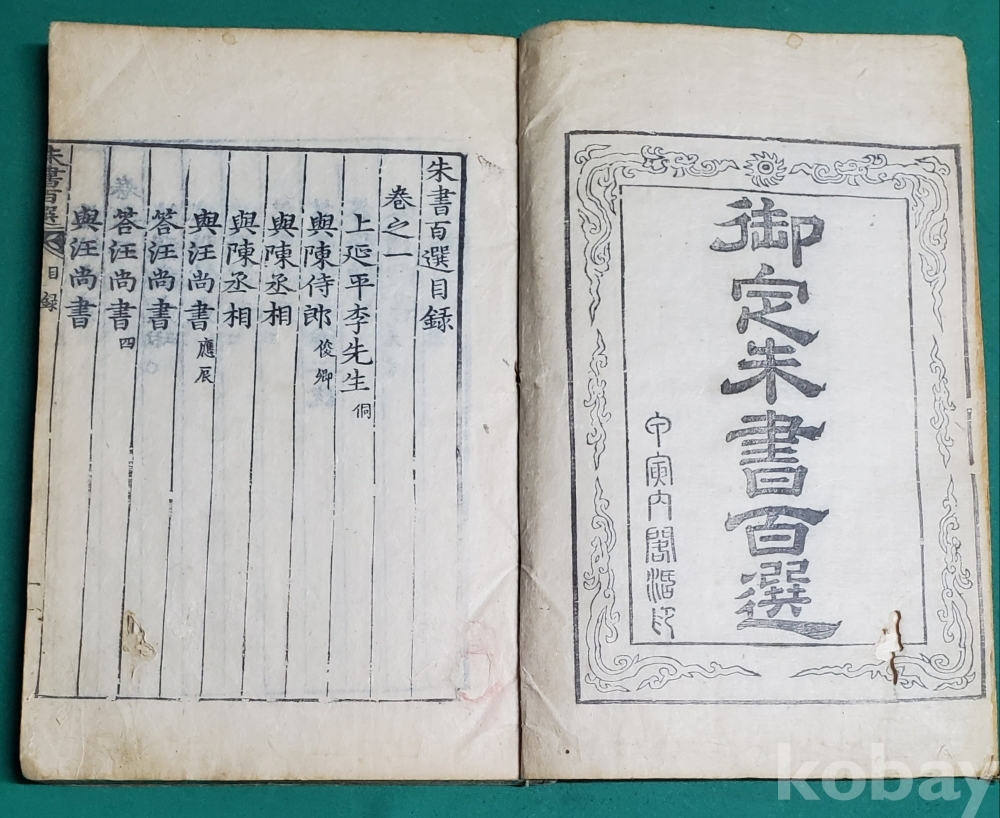 御定朱書百選
甲寅內閣活印
朱書百選目錄
卷之一
上延平李先生 侗
與陳侍郎 俊卿
與陳丞相
與陳丞相
與汪尚書 應辰
答汪尚書
答汪尚書 四
與汪尚書
朱書百選 目錄
kobay